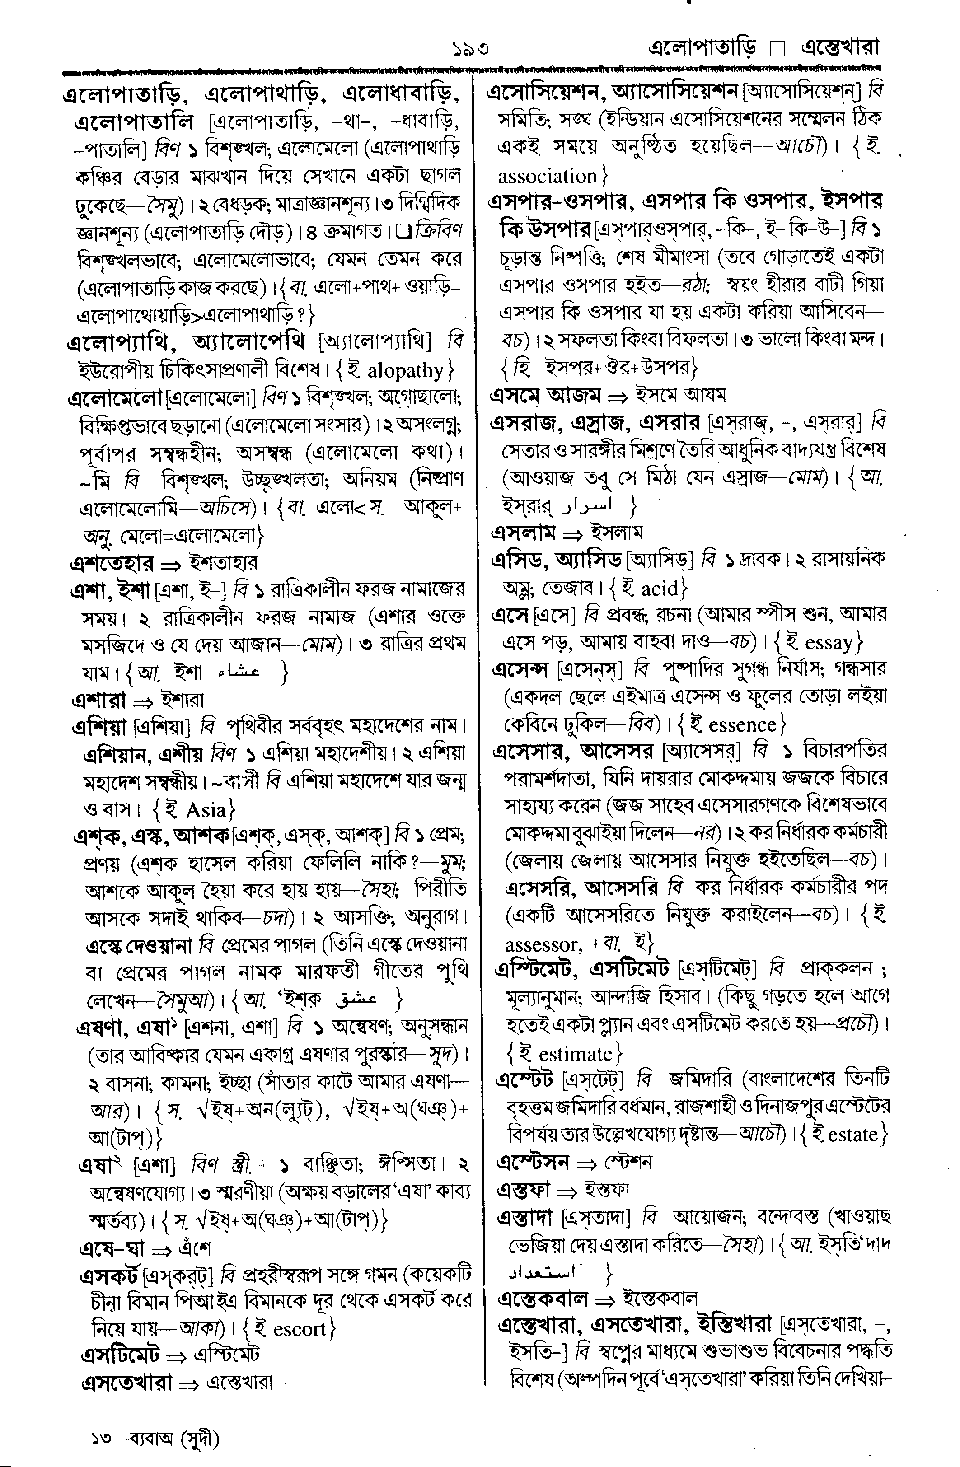 ১৯৩ এলোপাতাড়ি □ এস্তেখারা
এলোপাতাড়ি, এলোপাথাড়ি, এলোধাবাড়ি,
এলোপাতালি [এলোপাতাড়ি, -থা-, -ধাবাড়ি,
-পাতালি] বিণ ১ বিশৃঙ্খল; এলোমেলো (এলোপাথাড়ি
কঞ্চির বেড়ার মাঝখান দিয়ে সেখানে একটা ছাগল
ঢুকেছে—সৈমু)। ২ বেধড়ক; মাত্রাজ্ঞানশূন্য। ৩ দিগ্বিদিক
জ্ঞানশূন্য (এলোপাতাড়ি দৌড়)। ৪ ক্রমাগত। □ ক্রিবিণ
বিশৃঙ্খলভাবে; এলোমেলোভাবে; যেমন তেমন করে
(এলোপাতাড়ি কাজ করছে)। {বা. এলো+পাথ+ ওয়াড়ি-
এলোপাথোয়াড়ি>এলোপাথাড়ি?}
এলোপ্যাথি, অ্যালোপেথি [অ্যালোপ্যাথি] বি
ইউরোপীয় চিকিৎসাপ্রণালী বিশেষ। {ই alopathy}
এলোমেলো [এলোমেলো] বিণ ১ বিশৃঙ্খল; অগোছালো;
বিক্ষিপ্তভাবে ছড়ানো (এলোমেলো সংসার)। ২ অসংলগ্ন;
পূর্বাপর সম্বন্ধহীন; অসম্বন্ধ (এলোমেলো কথা)।
~মি বি বিশৃঙ্খল; উচ্ছৃঙ্খলতা; অনিয়ম (নিষ্প্রাণ
এলোমেলোমি—অচিসে)। {বা. এলো< স. আকুল+
অনু. মেলো=এলোমেলো}
এশতেহার ⇒ ইশতাহার
এশা, ইশা [এশা, ই-] বি ১ রাত্রিকালীন ফরজ নামাজের
সময়। ২ রাত্রিকালীন ফরজ নামাজ (এশার ওক্তে
মসজিদে ও যে দেয় আজান—মোম)। ৩ রাত্রির প্রথম
যাম। {আ. ইশা عشاء }
এশারা ⇒ ইশারা
এশিয়া [এশিয়া] বি পৃথিবীর সর্ববৃহৎ মহাদেশের নাম।
এশিয়ান, এশীয় বিণ ১ এশিয়া মহাদেশীয়। ২ এশিয়া
মহাদেশ সম্বন্ধীয়। ~বাসী বি এশিয়া মহাদেশে যার জন্ম
ও বাস। {ই Asia}
এশ্ক, এস্ক, আশক [এশ্ক্, এস্ক্, আশ্ক্] বি ১ প্রেম;
প্রণয় (এশ্ক হাসেল করিয়া ফেলিলি নাকি?—মুম;
আশকে আকুল হৈয়া কবে হায় হায়—সৈহা; পিরীতি
আসকে সদাই থাকিব—চদা)। ২ আসক্তি; অনুরাগ।
এস্কে দেওয়ানা বি প্রেমের পাগল (তিনি এস্কে দেওয়ানা
বা প্রেমের পাগল নামক মারফতী গীতের পুথি
লেখেন—সৈমুআ)। {আ. ‘ইশ্ক় عشق }
এষণা, এষা১ [এশনা, এশা] বি ১ অন্বেষণ; অনুসন্ধান
(তার আবিষ্কার যেমন একাগ্র এষণার পুরস্কার—সুদ)।
২ বাসনা; কামনা; ইচ্ছা (সাঁতার কাটে আমার এষণা—
আর)। {স. √ইষ্+অন(ল্যুট্), √ইষ্+অ(ঘঞ্)+
আ(টাপ্)}
এষা২ [এশা] বিণ স্ত্রী. ১ বাঞ্ছিতা; ঈপ্সিতা। ২
অন্বেষণযোগ্য। ৩ স্মরণীয়া (অক্ষয় বড়ালের ‘এষা’ কাব্য
স্মর্তব্য)। {স. √ইষ্+অ(ঘঞ্)+আ(টাপ্)}
এষে-ঘা ⇒ এঁশে
এসকর্ট [এস্কর্ট্] বি প্রহরীস্বরূপ সঙ্গে গমন (কয়েকটি
চীনা বিমান পিআইএ বিমানকে দূর থেকে এসকর্ট করে
নিয়ে যায়—আকা)। {ই escort}
এসটিমেট ⇒ এস্টিমেট
এসতেখারা ⇒ এস্তেখারা
এসোসিয়েশন, অ্যাসোসিয়েশন [অ্যাসোসিয়েশন্] বি
সমিতি; সঙ্ঘ (ইন্ডিয়ান এসোসিয়েশনের সম্মেলন ঠিক
একই সময়ে অনুষ্ঠিত হয়েছিল—আচৌ)। {ই.
association}
এসপার-ওসপার, এসপার কি ওসপার, ইসপার
কি উসপার [এস্পারওস্পার, -কি-, ই-কি-উ-] বি ১
চূড়ান্ত নিষ্পত্তি; শেষ মীমাংসা (তবে গোড়াতেই একটা
এসপার ওসপার হইত—রঠা; স্বয়ং হীরার বাটী গিয়া
এসপার কি ওসপার যা হয় একটা করিয়া আসিবেন—
বচ)। ২ সফলতা কিংবা বিফলতা। ৩ ভালো কিংবা মন্দ।
{হি ইসপর+ঔর+উসপর}
এসমে আজম ⇒ ইসমে আযম
এসরাজ, এস্রাজ, এসরার [এস্রাজ্, -, এস্রার্] বি
সেতার ও সারঙ্গীর মিশ্রণে তৈরি আধুনিক বাদ্যযন্ত্র বিশেষ
(আওয়াজ তবু সে মিঠা যেন এস্রাজ—মোম)। {আ.
ইস্রার্ اسرار }
এসলাম ⇒ ইসলাম
এসিড, অ্যাসিড [অ্যাসিড্] বি ১ দ্রাবক। ২ রাসায়নিক
অম্ল; তেজাব। {ই acid}
এসে [এসে] বি প্রবন্ধ; রচনা (আমার স্পীস শুন, আমার
এসে পড়, আমায় বাহবা দাও—বচ)। {ই essay}
এসেন্স [এসেন্স্] বি পুষ্পাদির সুগন্ধ নির্যাস; গন্ধসার
(একদল ছেলে এইমাত্র এসেন্স ও ফুলের তোড়া লইয়া
কেবিনে ঢুকিল—বিব)। {ই essence}
এসেসার, আসেসর [অ্যাসেসর্] বি ১ বিচারপতির
পরামর্শদাতা, যিনি দায়রার মোকদ্দমায় জজকে বিচারে
সাহায্য করেন (জজ সাহেব এসেসারগণকে বিশেষভাবে
মোকদ্দমা বুঝাইয়া দিলেন—নর)। ২ কর নির্ধারক কর্মচারী
(জেলায় জেলায় আসেসার নিযুক্ত হইতেছিল—বচ)।
এসেসরি, আসেসরি বি কর নির্ধারক কর্মচারীর পদ
(একটি আসেসরিতে নিযুক্ত করাইলেন—বচ)। {ই
assessor, + বা. ই}
এস্টিমেট, এসটিমেট [এস্টিমেট্] বি প্রাক্কলন ;
মূল্যানুমান; আন্দাজি হিসাব। (কিছু গড়তে হলে আগে
হতেই একটা প্ল্যান এবং এসটিমেট করতে হয়—প্রচৌ)।
{ই estimate}
এস্টেট [এস্টেট্] বি জমিদারি (বাংলাদেশের তিনটি
বৃহত্তম জমিদারি বর্ধমান, রাজশাহী ও দিনাজপুর এস্টেটের
বিপর্যয় তার উল্লেখযোগ্য দৃষ্টান্ত—আচৌ)। {ই estate}
এস্টেসন ⇒ স্টেশন
এস্তফা ⇒ ইস্তফা
এস্তাদা [এস্তাদা] বি আয়োজন; বন্দোবস্ত (খাওয়াছ
ভেজিয়া দেয় এস্তাদা করিতে—সৈহা)। {আ. ইস্তি‘দাদ
استعداد }
এস্তেকবাল ⇒ ইস্তেকবাল
এস্তেখারা, এসতেখারা, ইস্তিখারা [এস্তেখারা, -,
ইসতি-] বি স্বপ্নের মাধ্যমে শুভাশুভ বিবেচনার পদ্ধতি
বিশেষ (অল্পদিন পূর্বে ‘এস্তেখারা’ করিয়া তিনি দেখিয়া-
১৩ ব্যবাঅ (সুদী)